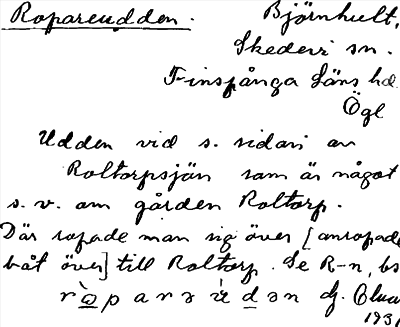 Ropareudden. Björnhult,
Skedevi sn.
Finspånga Läns hd.
Ögl
Udden vid s. sidan av
Roltorpsjön som är något
s. v. om gården Roltorp.
Där ropade man sig över [anropade
båt över] till Roltorp. Se R-n, bs
dj.
1931